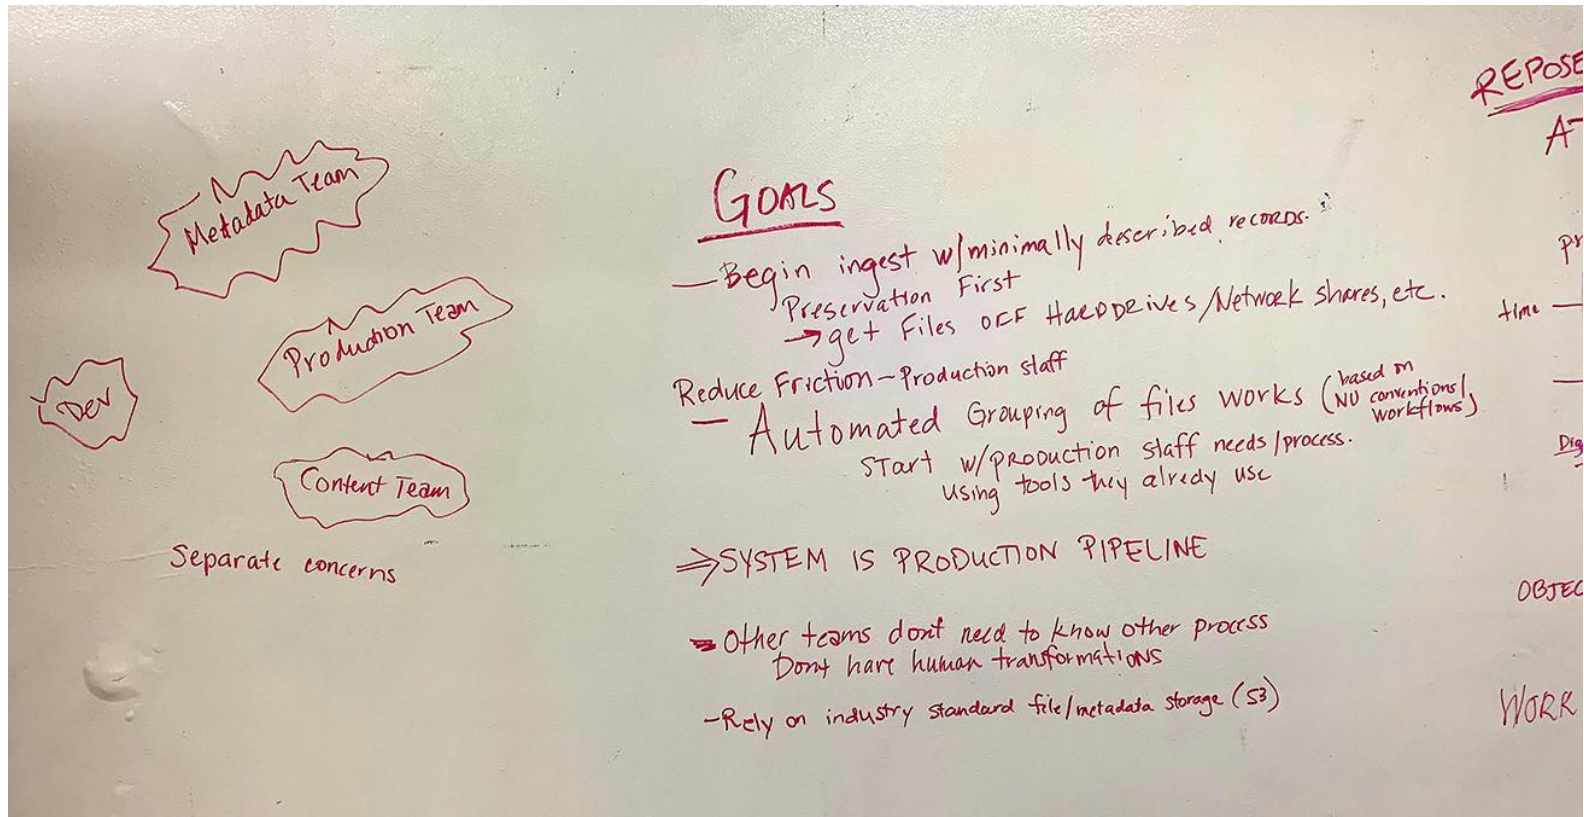 Metadata Team
Production Team
Dev
Content Team
Separate concerns
GOALS
— Begin ingest w/minimally described records.
Preservation First
→ get Files OFF HARDDRIVES/Network shares, etc.
Reduce Friction - Production staff
— Automated Grouping of files works (based on
NU conventions/
workflows)
START w/PRODUCTION staff needs/process.
using tools they alredy use
⇒ SYSTEM IS PRODUCTION PIPELINE
- Other teams dont need to know other process
Dont have human transformations
- Rely on industry standard file/metadata storage (S3)
REPOSE
AT
pr
time —
Dig
OBJEC
WORK